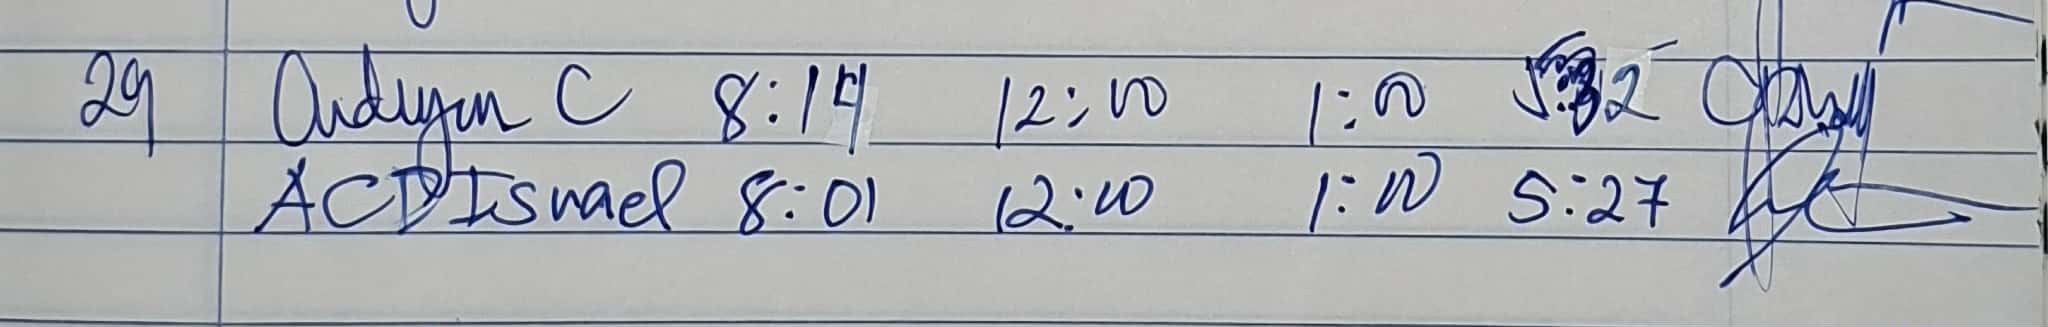 29 C 8:14 12:00 1:00 5:32
ACD Israel 8:01 12:00 1:00 5:27